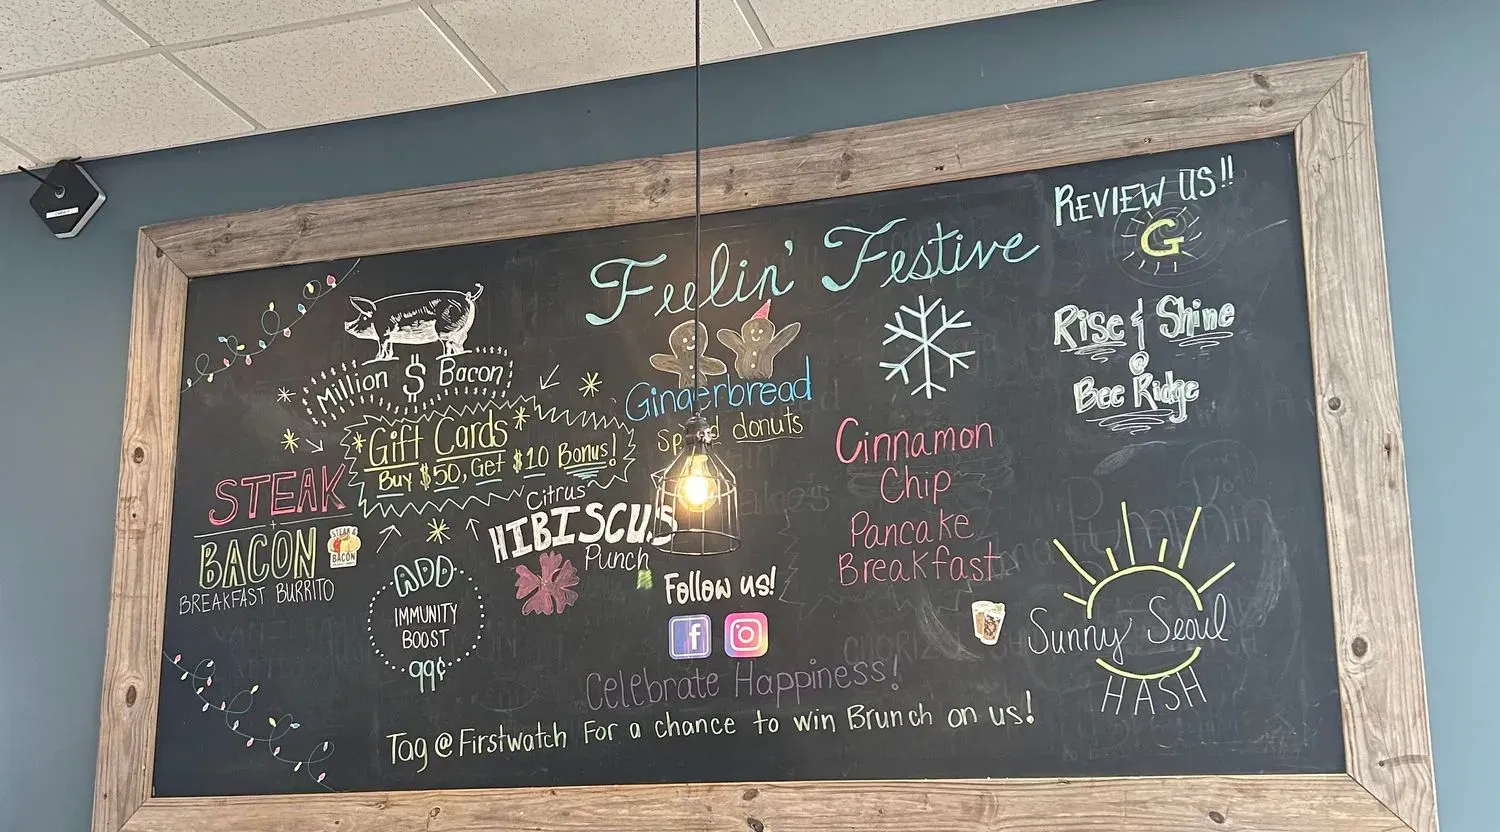 Feelin' Festive
REVIEW US!!
G
Million $ Bacon
Gift Cards
Buy $50, Get $10 Bonus!
STEAK
+
BACON
BREAKFAST BURRITO
STEAK &
BACON
ADD
IMMUNITY
BOOST
99¢
Citrus
HIBISCUS
Punch
Gingerbread
donuts
Follow us!
f
Celebrate Happiness!
Tag @Firstwatch For a chance to win Brunch on us!
Cinnamon
Chip
Pancake
Breakfast
Rise & Shine
@
Bee Ridge
Sunny Seoul
HASH